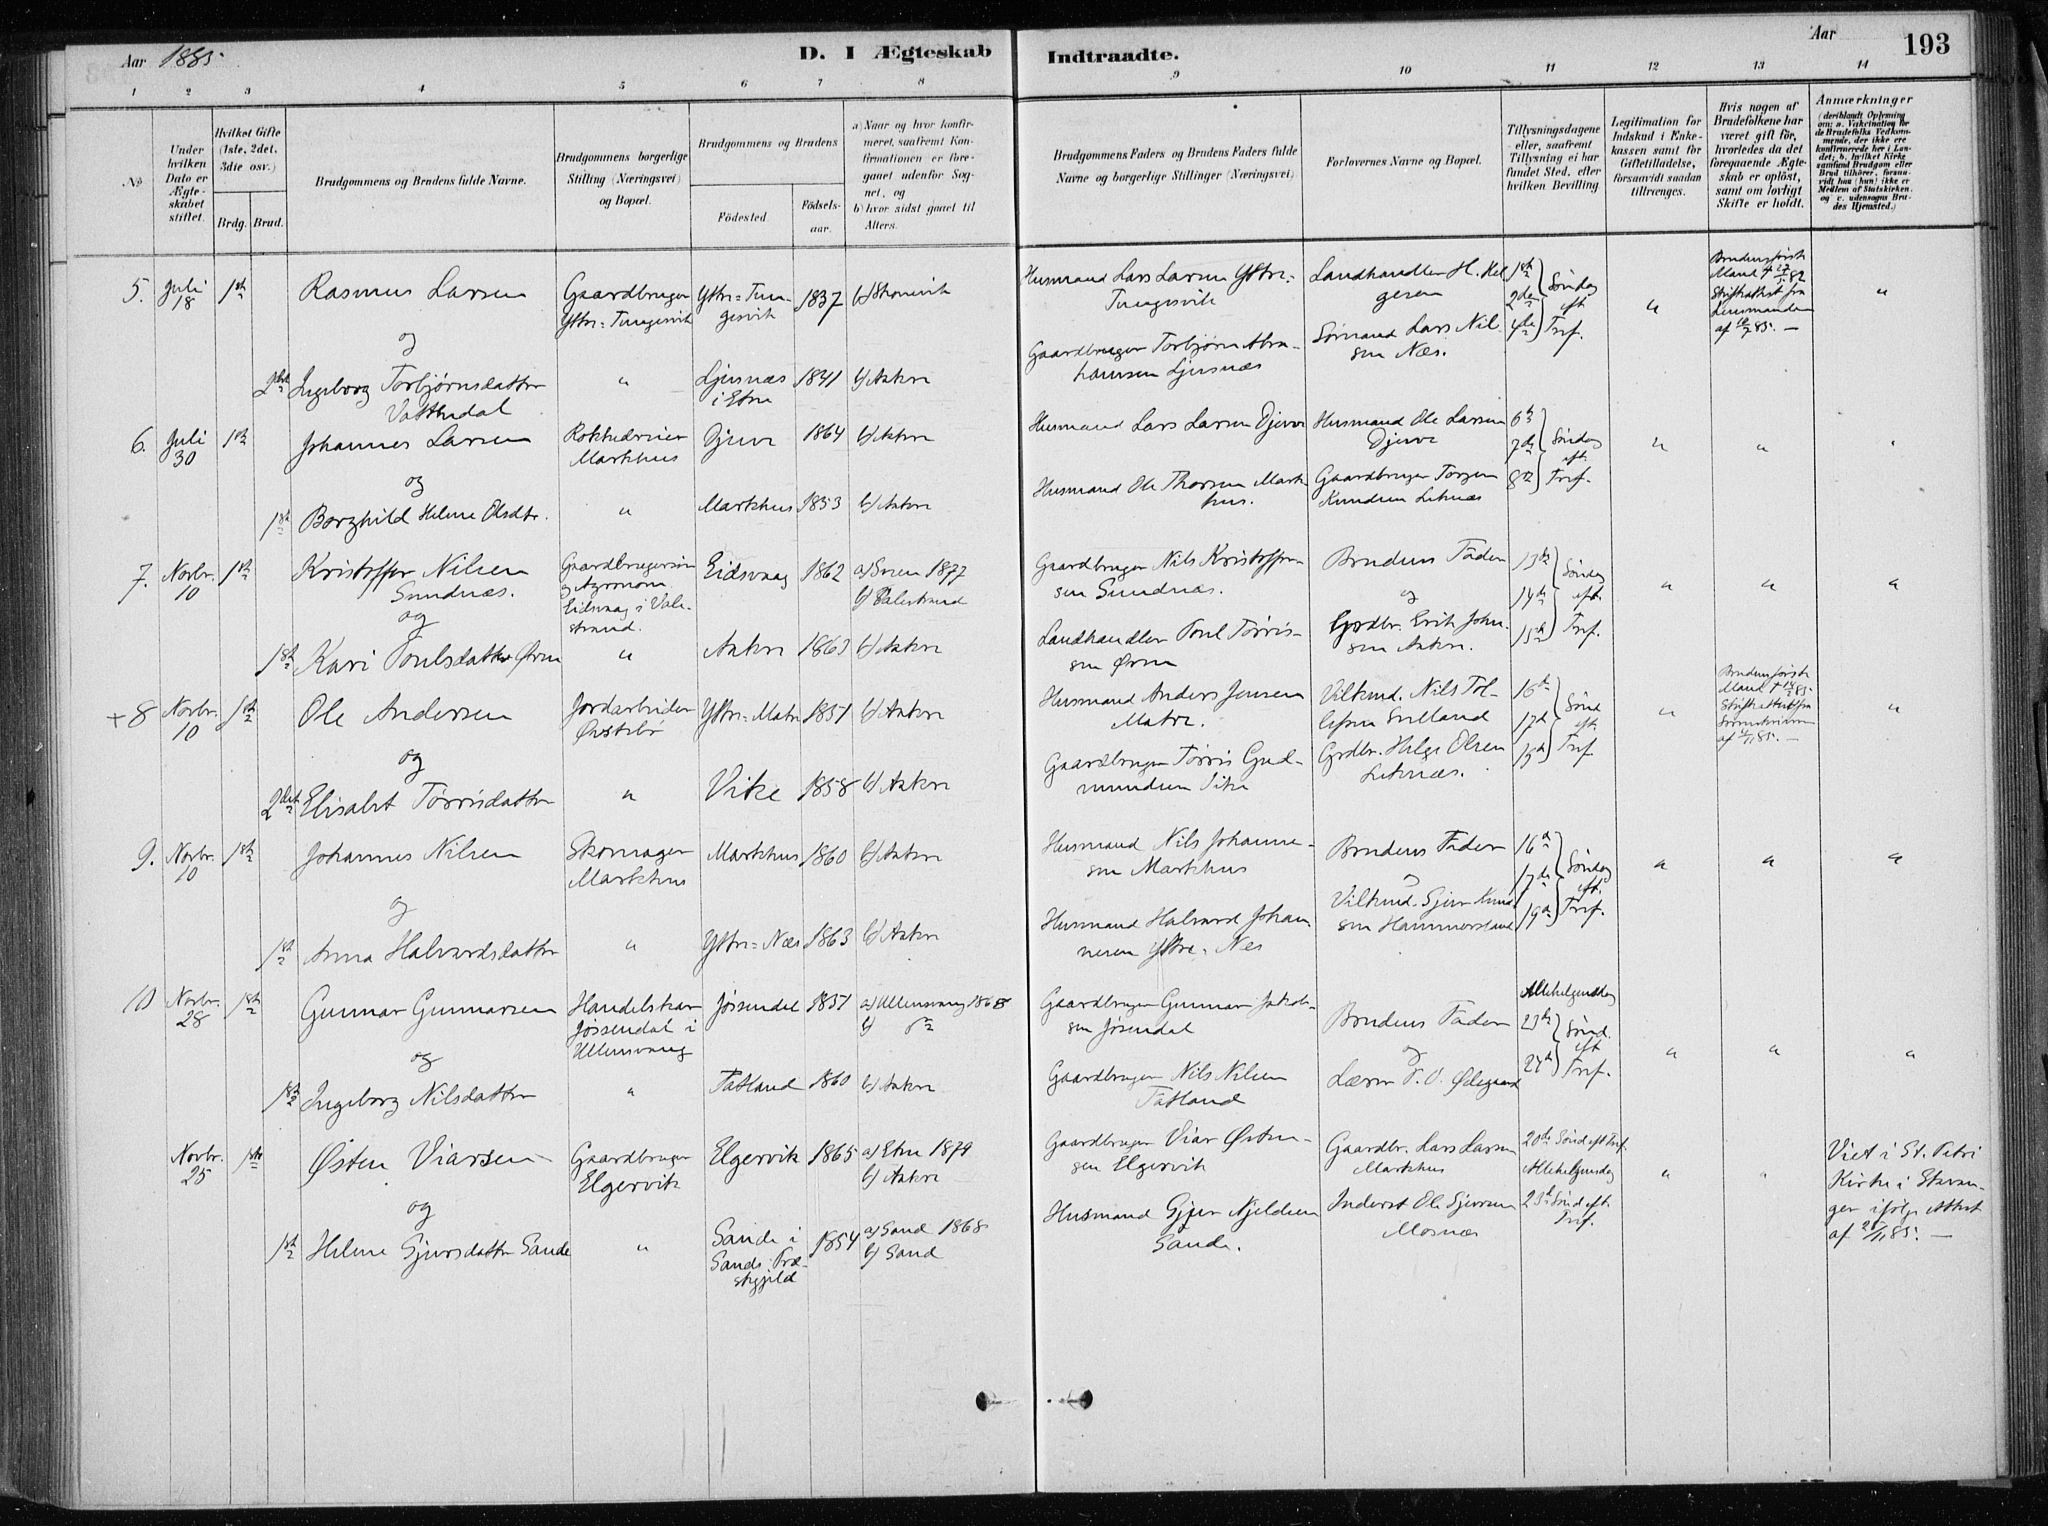 Aar 1885.
D. I Ægteskab Indtraadte.
Aar
193
1 2 3 4 5 6 7 8 9 10 11 12 13 14
No
Under hvilken Dato er Ægteskabet stiftet.
Hvilket Gifte (1ste, 2det, 3dte osv.)
Brdg. Brud.
Brudgommens og Brudens fulde Navne.
Brudgommens borgerlige Stilling (Næringsvei) og Bopæl.
Brudgommens og Brudens
Födested.
Födselsaar.
a) Naar og hvor konfirmeret, saafremt Konfirmationen er foregaaet udenfor Sognet, og
b) hvor sidst gaaet til Alters.
Brudgommens Faders og Brudens Faders fulde Navne og borgerlige Stillinger (Næringsvei)
Forlovernes Navne og Bopæl.
Tillysningsdagene eller, saafremt Tillysning ei har fundet Sted, efter hvilken Bevilling
Legitimation for Indskud i Enkekassen samt for Giftetilladelse, forsaavidt saadan tiltrænges.
Hvis nogen af Brudefolkene har været gift för, hvorledes da det foregaaende Ægteskab er oplöst, samt om lovligt Skifte er holdt.
Anmærkninger
(deriblandt Oplysning om: a. Vakcination for de Brudefolks Vedkommende, der ikke ere konfirmerede her i Landet; b. hvilket Kirkesamfund Brudgom eller Brud tilhörer, forsaavidt han (hun) ikke er Medlem af Statskirken, og c. udensogns Brudes Hjemsted.)
5. Juli 18 1ste Rasmus Larsen
Gaardbruger Ytre-Tungesvik
Ytre-Tungesvik 1837 b) Skonevik
Husmand Lars Larsen Ytre-Tungesvik
Landhandler H. Helgesen
1ste 2den 4de Søndag eft. Tref.
"
Brudens første Mand † 27/1 82 Skifteattest fra Lensmanden af 10/7 85. —
"
og
2det Ingeborg Torbjørnsdatter Vattendal
" Ljusnæs i Etne 1841 b) Aakre
Gaardbruger Torbjørn Abrahamsen Ljusnæs
Sømand Lars Nilsen Næs.
6. Juli 30 1ste Johannes Larsen
Markhus
Djuve 1864 b) Aakre
Husmand Lars Larsen Djuve
Husmand Ole Larsen Djuve
6te 7de 8de Søndag eft. Tref.
" " "
og
1ste Borghild Helene Olsdtr.
" Markhus 1853 b) Aakre
Husmand Ole Thorsen Markhus.
Gaardbruger Torgen Knudsen Leknæs
7. Novbr. 10 1ste Kristoffer Nilsen Sundnæs.
Gaardbrugersøn og Agronom Eidsvaag i Valestrand.
Eidsvaag 1862 a) Sveen 1877 b) Valestrand
Gaardbruger Nils Kristoffersen Sundnæs.
Brudens Fader
13de 14de 15de Søndag eft. Tref.
" " "
og
1ste Kari Poulsdatter Øvre
" Aakre 1863 b) Aakre
Landhandler Poul Tørrissen Øvre
og
Grdbr. Erik Johnsen Aakre.
+8 Novbr. 10 1ste Ole Andersen
Jordarbeider Øvstebø
Ytre-Matre 1851 b) Aakre
Husmand Anders Jensen Matre.
Vilkmd. Nils Tollefsen
16de 17de Sønd eft. Tref.
"
Brudens første Mand † 85. Skifteattest fra af 85. —
"
og
2det Elisabet Tørrisdatter
" Vike 1858 b) Aakre
Gaardbruger Tørris Gudmundsen Vike
Grdbr. Helge Olsen Leknæs.
9. Novbr. 10 1ste Johannes Nilsen
Skomager Markhus
Markhus 1860 b) Aakre
Husmand Nils Johannesen Markhus
Brudens Fader
16de 17de 19de Søndag eft. Tref.
" " "
og
1ste Anna Halvardsdatter
" Ytre-Næs 1863 b) Aakre
Husmand Halvard Johannesen Ytre-Næs
og
Vilkmd. Sjur Knudsen Hammersland
10 Novbr. 28 1ste Gunnar Gunnarsen
Handelskar Jøssendal i Ullensvang
Jøssendal 1851 a) Ullensvang 1868 b) do
Gaardbruger Gunnar Jakobsen Jøsendal
Brudens Fader
Allehelgensdag 23de 24de Sønd. eft Tref.
" " "
og
1ste Ingeborg Nilsdatter
" Fatland 1860 b) Aakre
Gaardbruger Nils Nilsen Fatland
og
Lærer Ødegaard
Novbr. 25 1ste Østen Viarsen
Gaardbruger Elgervik
Elgervik 1865 a) Etne 1879 b) Aakre
Gaardbruger Viar Østensen Elgervik
Gaardbr. Lars Larsen Markhus
20de Sønd eft Tref. Allehelgensdag 23de Sønd eft. Tref.
" "
Viet i St. Petri Kirke i Stavanger ifølge Attest af 25/11 85. —
og
1ste Helene Sjursdatter Sande
" Sande i Sands Præstegjeld 1854 a) Sand 1868 b) Sand
Husmand Sjur Kjeldsen Sande.
Inderst Ole Sjursen Mosnæs